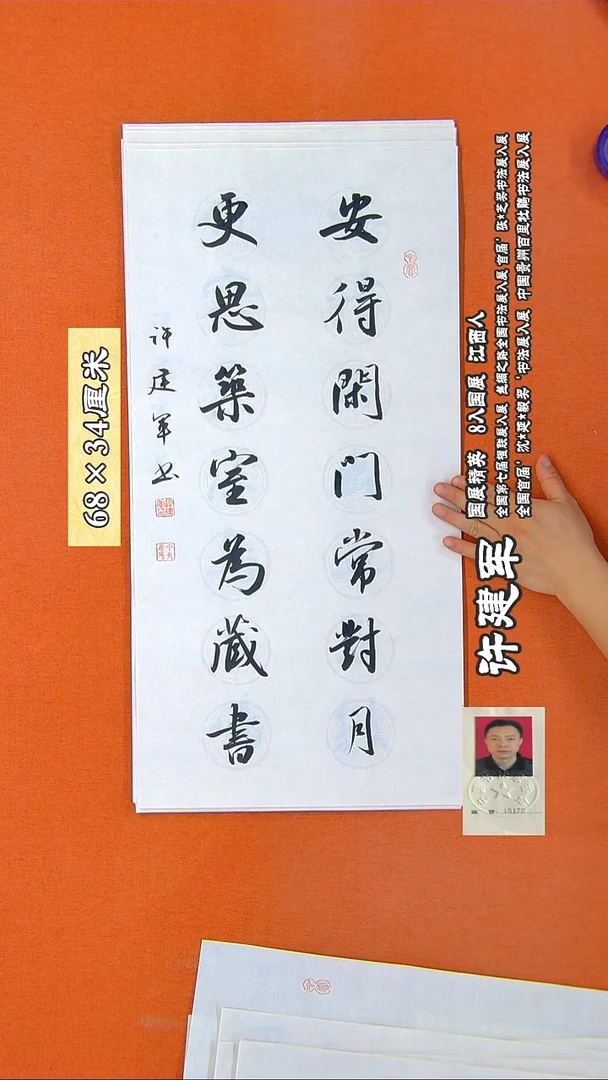 安得閑門常對月
更思築室為藏書
许建军书
68×34厘米
许建军
国展精英 8入国展 江西人
全国第七届楹联展入展 丝绸之路全国书法展入展 首届'张*芝奖书法展入展
全国首届'沈*延*毅奖'书法展入展 中国贵州百里杜鹃书法展入展
15172